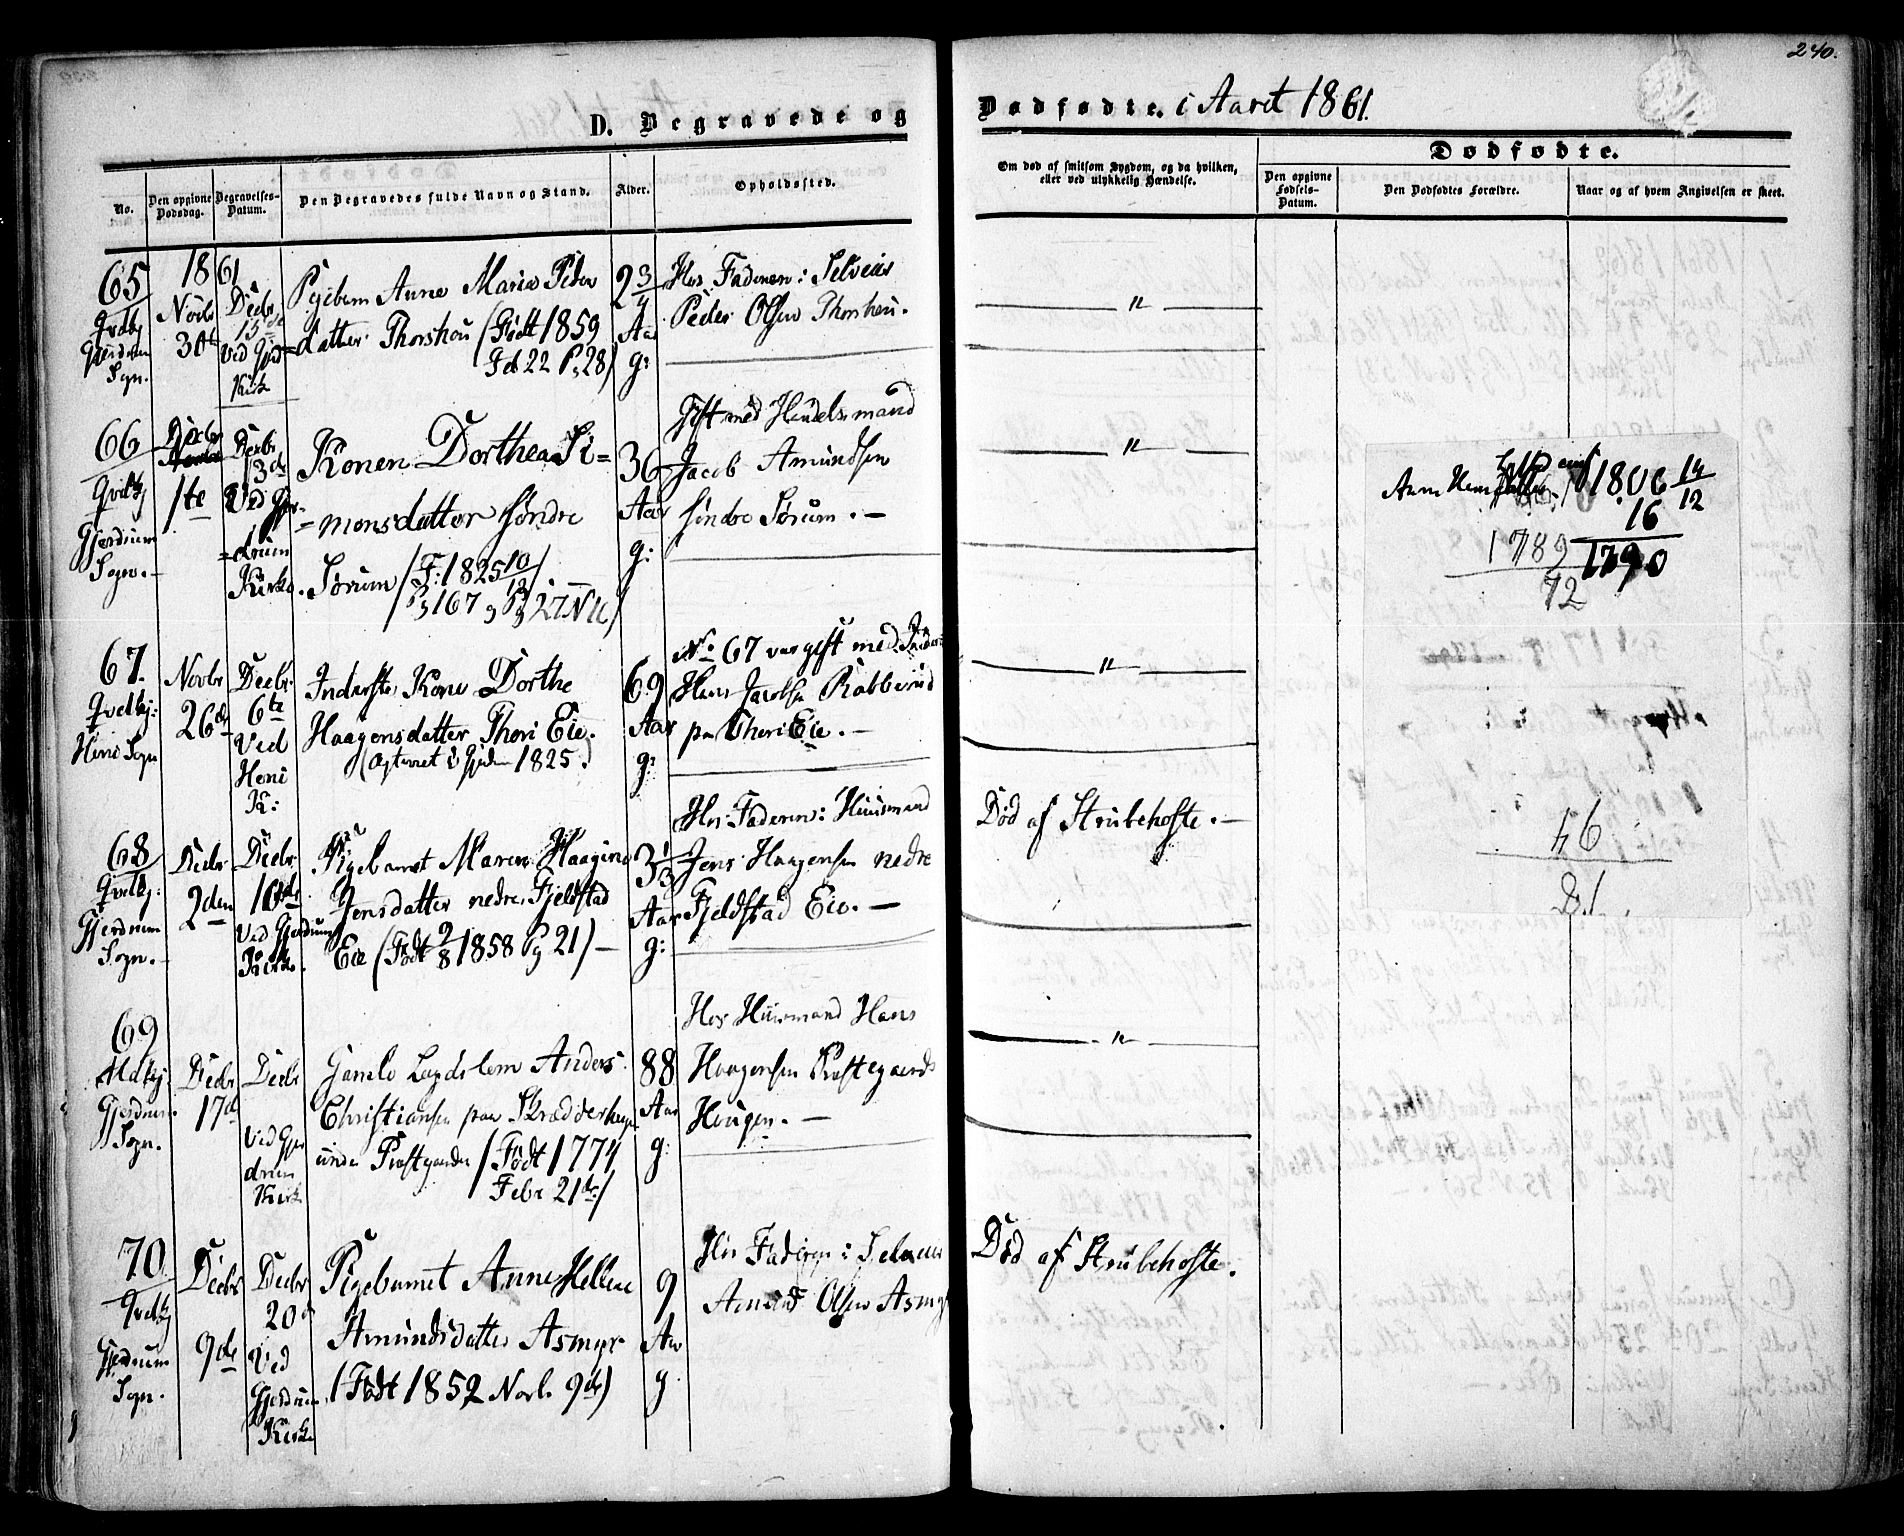 240.
D. Begravede og Dødfødte. i Aaret 1861.
No.
Den opgivne Dødsdag.
Begravelses-Datum.
Den Begravedes fulde Navn og Stand.
Alder.
Opholdssted.
Om død af smitsom Sygdom, og da hvilken, eller ved ulykkelig Hændelse.
Dødfødte.
Den opgivne Fødsels-Datum.
Den Dødfødtes Forældre.
Naar og af hvem Angivelsen er skeet.
65
Qvdkj
Gjerdrum
Sogn.
1861
Novbr
30te
Decbr
15de
Ved Gjerd=
Kirke
Pigebarn Anne Marie Peders
datter Thorshou (Født 1859
Feb 22 Pg 28)
2 3/4
Aar
g:
Hos Faderen: Selveier
Peder Olsen Thorshou.
"
66
Qvdkj
Gjerdrum
Sogn. -
Decbr
1te
Decbr
13de
Ved Gjer=
=drum
Kirke.
Konen Dorthea Si=
=monsdatter søndre
Sørum (F: 1825 10/12)
Pg 167 g Pg 27 N 10)
36
Aar
g:
Gift med Handelsmand
Jacob Amundsen
søndre Sørum. -
"
67.
Qvdkj:
Heni Sogn
Novbr
26de
Decbr
6te
Ved
Heni
K:
Inderste Kone Dorthe
Haagensdatter Theri Eie.
1825.)
69
Aar
g:
No 67 var gift med Inders
Hans Jacobsen Robberud
paa Theri Eie. -
"
68
Qvdkj:
Gjerdrum
Sogn. -
Decbr
2den
Decbr
16de
Ved Gjerdrum
Kirke.
Pigebarnet Maren Haagine
Jensdatter nedre Fjeldstad
Eie (Født 2/8 1858 Pg 21) -
3 1/3
Aar
g:
Hos Faderen: Huusmand
Jens Haagensen nedre
Fjeldstad Eie. -
Død af Strubehoste. -
69
Mdkj
Gjerdrum.
Sogn.
Decbr
17de
Decbr
Ved Gjer
drum
Kirke
Gamle Lægdslem Anders
Christiansen paa Skrædderhaugen
under Præstegaarden (Født 1774
Febr 21de)
88
Aar
g:
Hos Huusmand Hans
Haagensen Præstegaards
Hougen. -
"
70.
Qvdkj
Gjerdrum
Sogn.
Decbr
9de
Decbr
20de
Ved
Gjerdrum
Kirke
Pigebarnet Anne Hellene
Amundsdatter Asmyr
(Født 1852 Novbr 9de)
9
Aar
g.
Hos Faderen: Selveier
Amund Olsen Asmyr
Død af Strubehoste.
Anne
1806 14/12
16
1789
1790
72
46